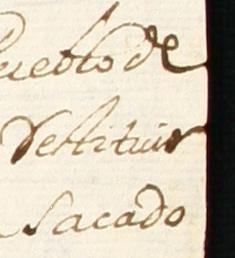 Pueblo de
Restituir
sacado